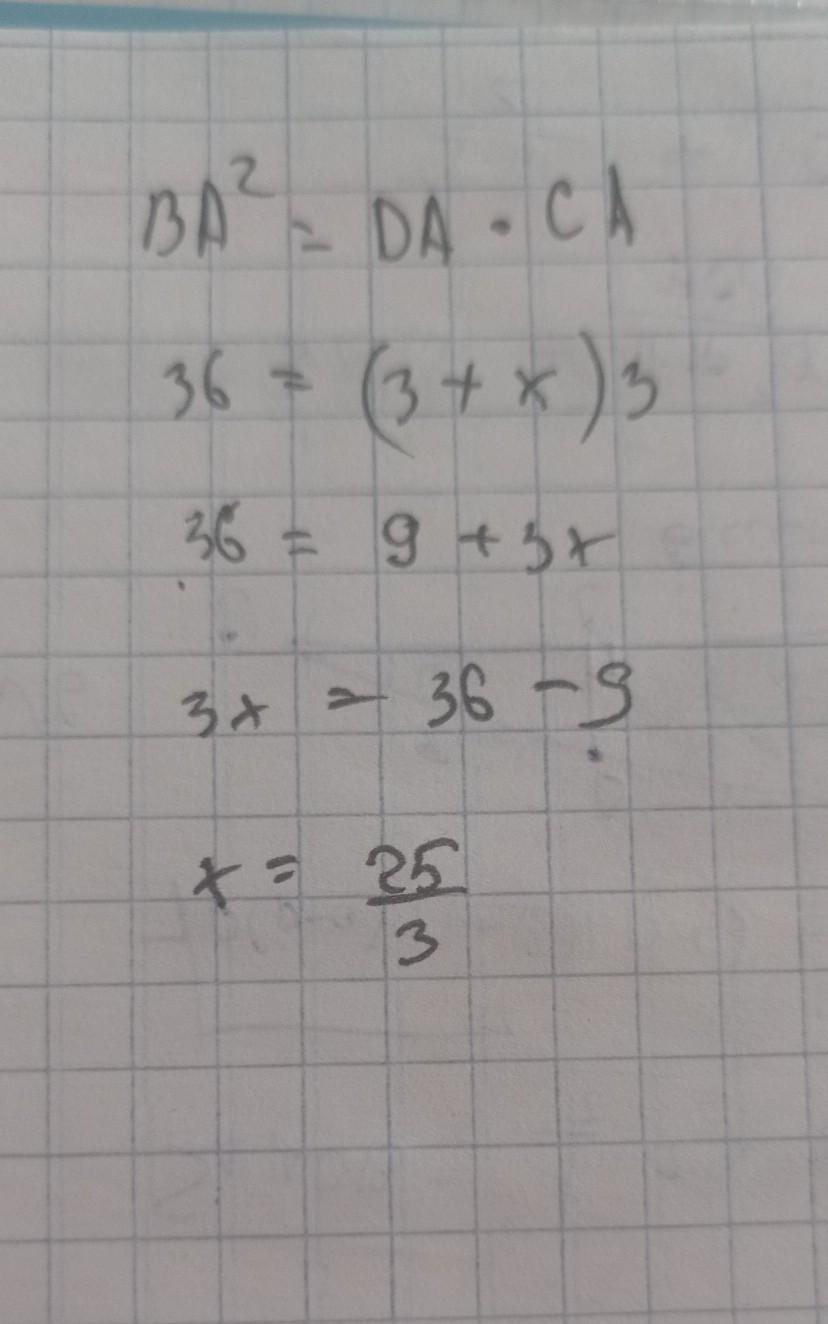 BA² = DA · CA
36 = (3 + x) 3
36 = 9 + 3x
3x = 36 - 9
x = 25/3